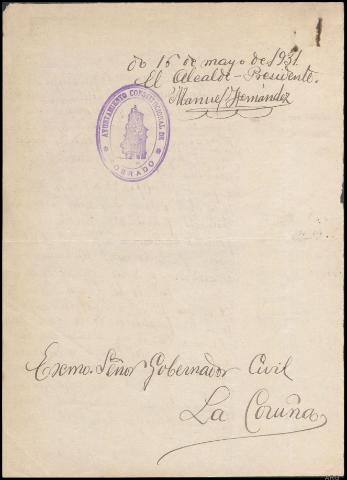 do 16 de mayo de 1931
El Alcalde-Presidente.
Manuel Hernández
AYUNTAMIENTO CONSTITUCIONAL DE
SOBRADO
Excmo. Señor Gobernador Civil
La Coruña